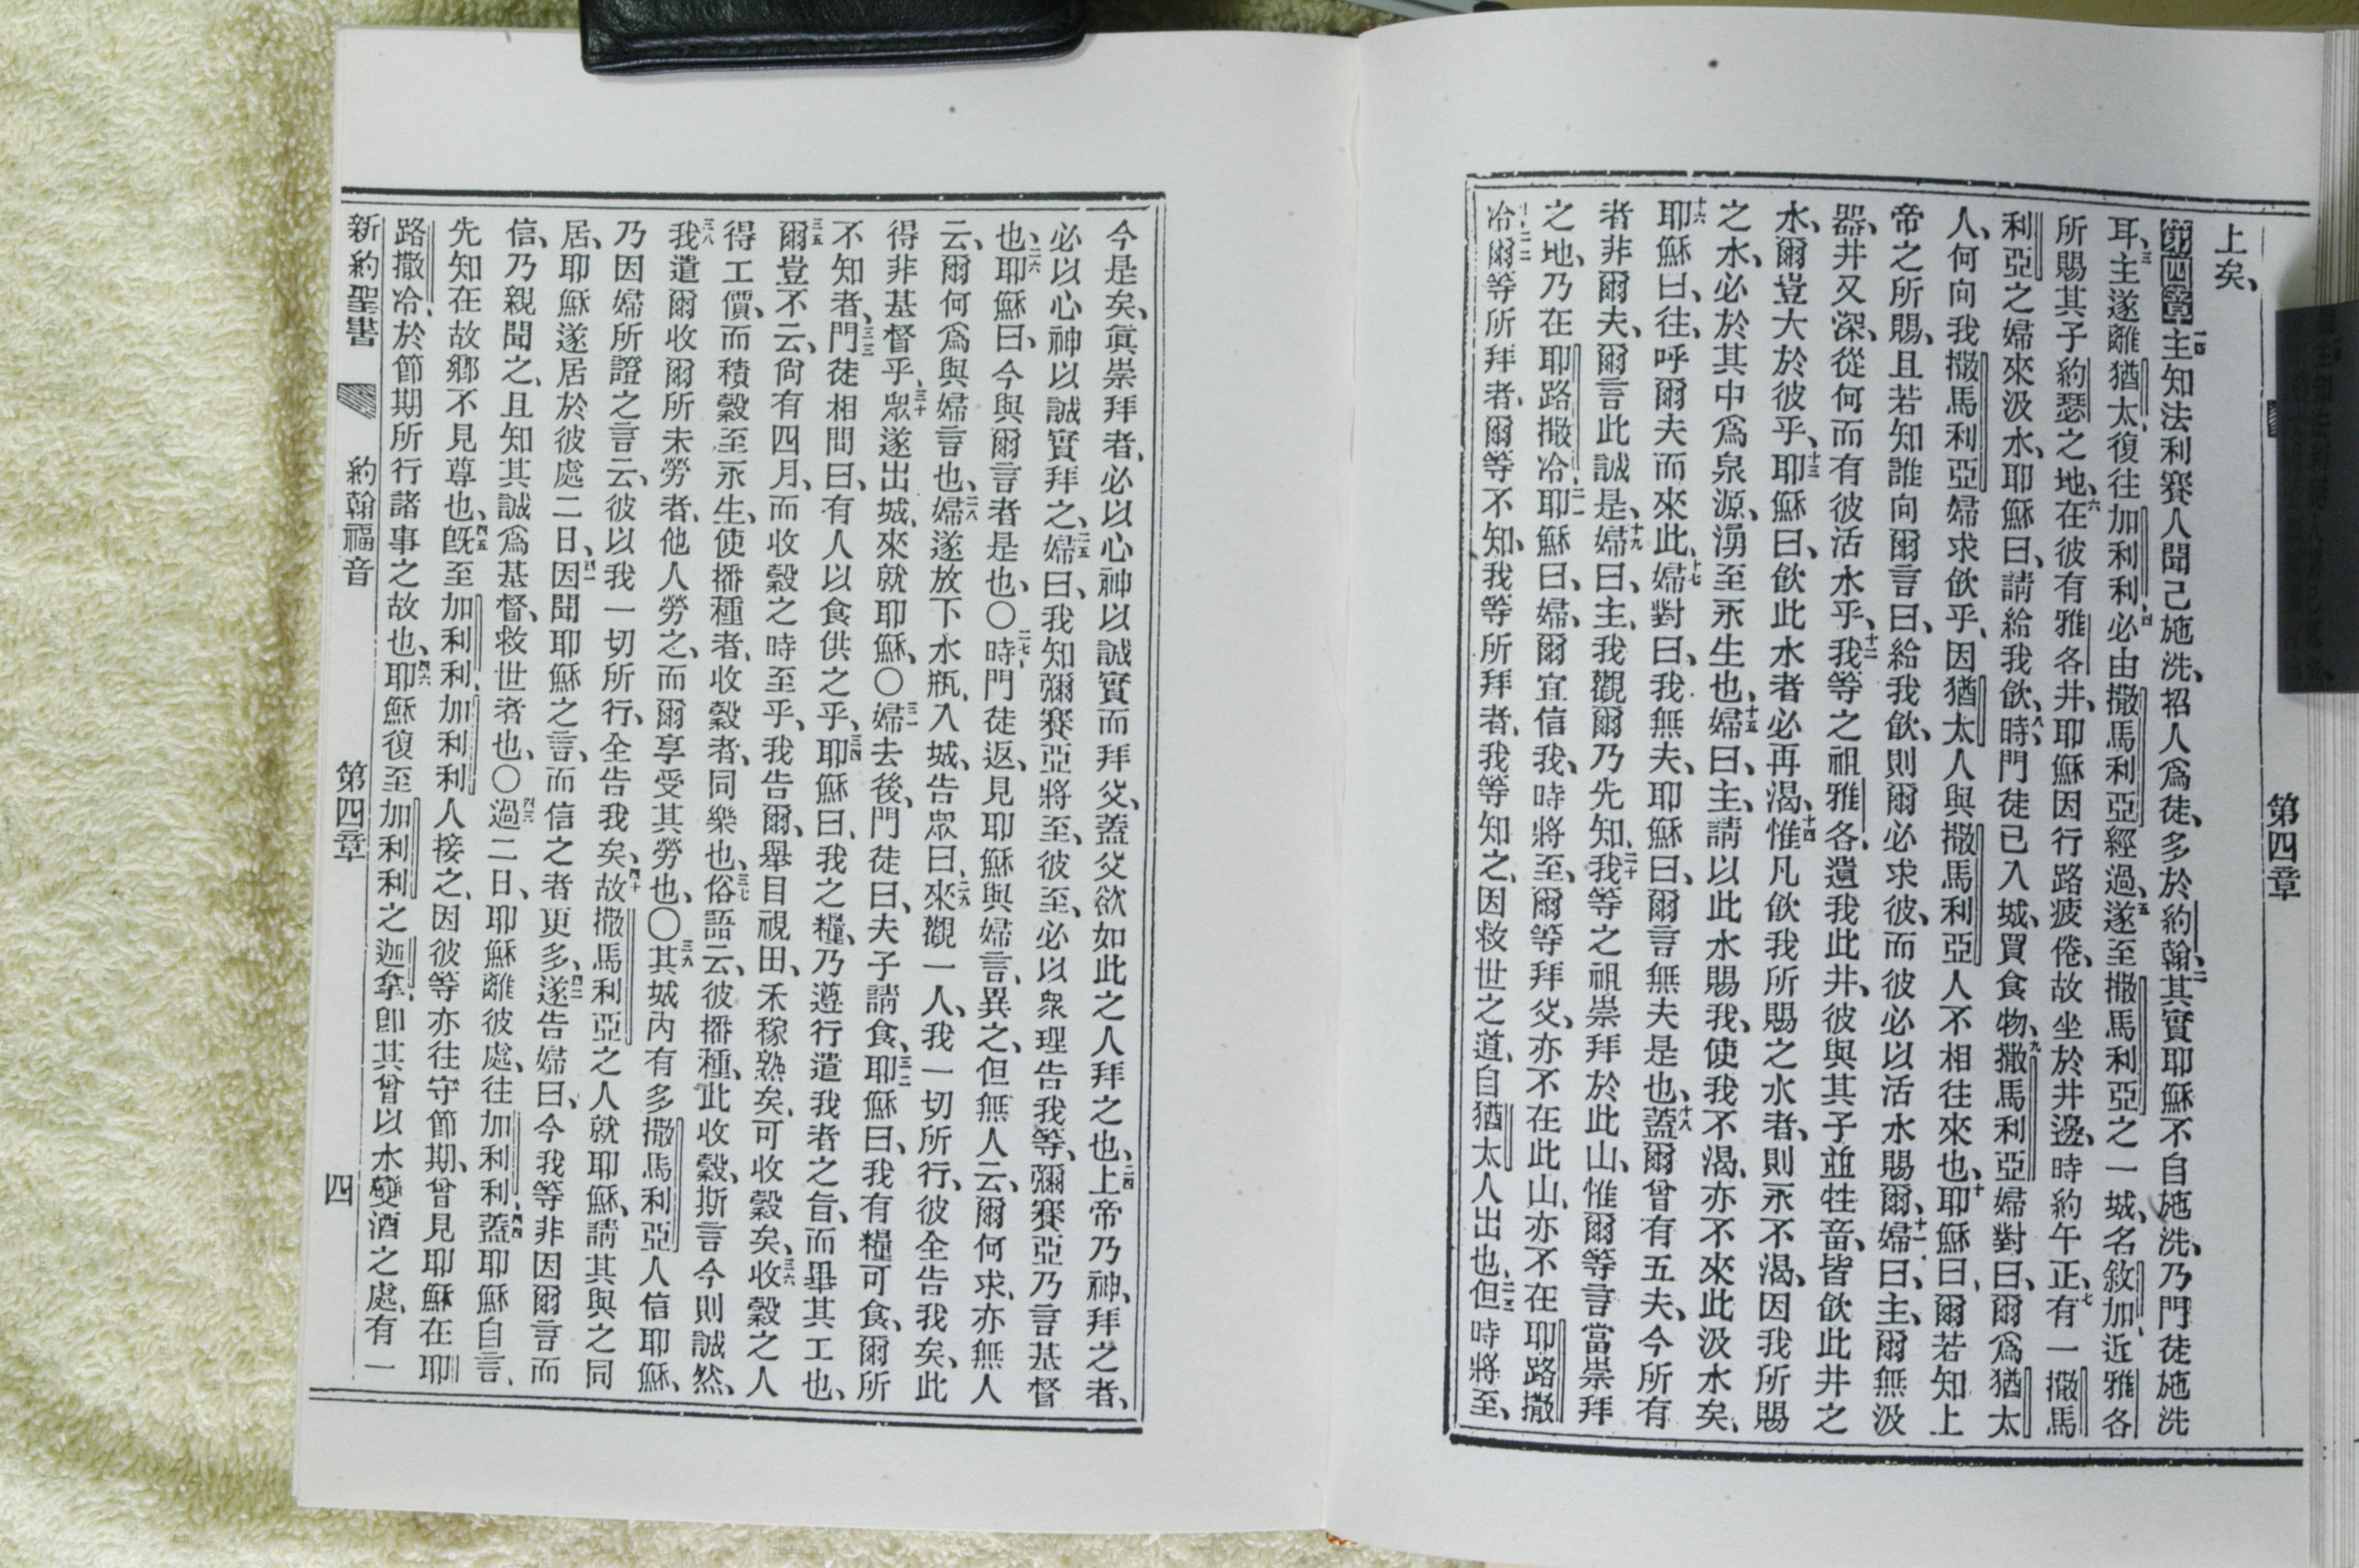 第四章
上矣、
第四章一主知法利賽人聞己施洗、招人爲徒、多於約翰、二其實耶穌不自施洗、乃門徒施洗
耳、三主遂離猶太、復往加利利、四必由撒馬利亞經過、五遂至撒馬利亞之一城、名敘加、近雅各
所賜其子約瑟之地、六在彼有雅各井、耶穌因行路疲倦、故坐於井邊、時約午正、七有一撒馬
利亞之婦來汲水、耶穌曰、請給我飮、八時門徒已入城、買食物、九撒馬利亞婦對曰、爾爲猶太
人、何向我撒馬利亞婦求飮乎、因猶太人與撒馬利亞人不相往來也、十耶穌曰、爾若知上
帝之所賜、且若知誰向爾言曰、給我飮、則爾必求彼、而彼必以活水賜爾、十一婦曰、主、爾無汲
器、井又深、從何而有彼活水乎、十二我等之祖雅各、遺我此井、彼與其子並牲畜、皆飮此井之
水、爾豈大於彼乎、十三耶穌曰、飮此水者必再渴、十四惟凡飮我所賜之水者、則永不渴、因我所賜
之水、必於其中爲泉源、湧至永生也、十五婦曰、主、請以此水賜我、使我不渴、亦不來此汲水矣、
十六耶穌曰、往、呼爾夫而來此、十七婦對曰、我無夫、耶穌曰、爾言無夫是也、十八蓋爾曾有五夫、今所有
者非爾夫、爾言此誠是、十九婦曰、主、我觀爾乃先知、二十我等之祖崇拜於此山、惟爾等言當崇拜
之地、乃在耶路撒冷、二一耶穌曰、婦、爾宜信我、時將至、爾等拜父、亦不在此山、亦不在耶路撒
冷、二二爾等所拜者、爾等不知、我等所拜者、我等知之、因救世之道、自猶太人出也、二三但時將至、
今是矣、眞崇拜者、必以心神以誠實而拜父、蓋父欲如此之人拜之也、二四上帝乃神、拜之者、
必以心神以誠實拜之、二五婦曰、我知彌賽亞將至、彼至、必以衆理告我等、彌賽亞乃言基督
也、二六耶穌曰、今與爾言者是也、〇二七時、門徒返、見耶穌與婦言、異之、但無人云、爾何求、亦無人
云、爾何爲與婦言也、二八婦遂放下水瓶、入城、告眾曰、二九來觀一人、我一切所行、彼全告我矣、此
得非基督乎、三十眾遂出城、來就耶穌、〇三一婦去後、門徒曰、夫子請食、三二耶穌曰、我有糧可食、爾所
不知者、三三門徒相問曰、有人以食供之乎、三四耶穌曰、我之糧、乃遵行遣我者之旨、而畢其工也、
三五爾豈不云、尙有四月、而收穀之時至乎、我告爾、舉目視田、禾稼熟矣、可收穀矣、三六收穀之人
得工價、而積穀至永生、使播種者、收穀者、同樂也、三七俗語云、彼播種、此收穀、斯言今則誠然、
三八我遣爾收爾所未勞者、他人勞之、而爾享受其勞也、〇三九其城內有多撒馬利亞人信耶穌、
乃因婦所證之言云、彼以我一切所行、全告我矣、四十故撒馬利亞之人就耶穌、請其與之同
居、耶穌遂居於彼處二日、四一因聞耶穌之言、而信之者更多、四二遂告婦曰、今我等非因爾言而
信、乃親聞之、且知其誠爲基督、救世者也、〇四三過二日、耶穌離彼處、往加利利、四四蓋耶穌自言、
先知在故鄉不見尊也、四五旣至加利利、加利利人接之、因彼等亦往守節期、曾見耶穌在耶
路撒冷、於節期所行諸事之故也、四六耶穌復至加利利之迦拿、卽其曾以水變酒之處、有一
新約聖書 約翰福音 第四章 四